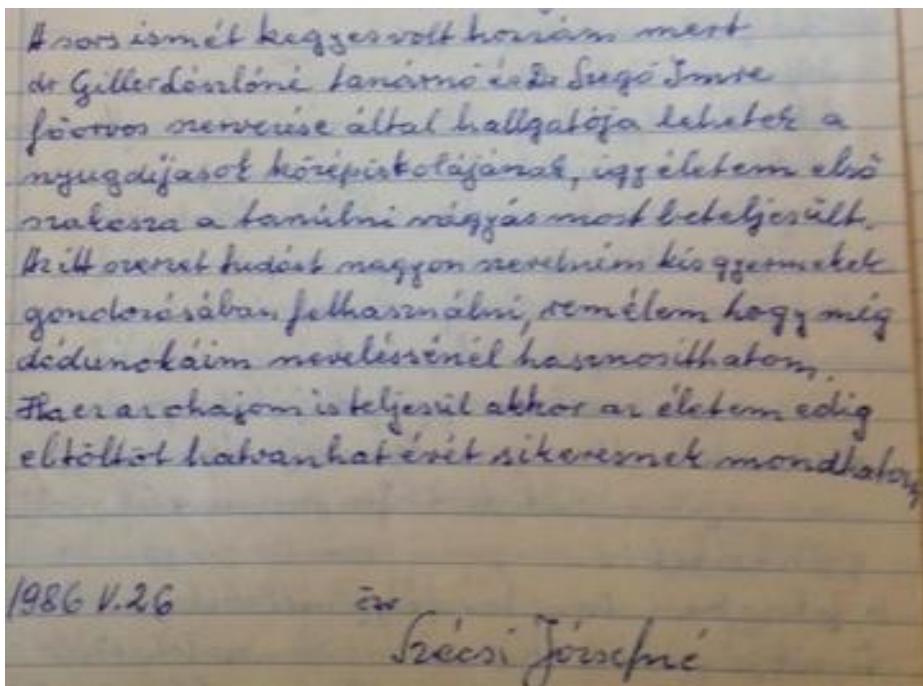 A sors ismét kegyes volt hozzám mert
dr Giller Lászlóné tanárnő és Dr Szegő Imre
főorvos szervezése által hallgatója lehetek a
nyugdíjasok középiskolájának, így életem első
szakasza a tanúlni vágyás most beteljesült.
Az itt szerzet tudást nagyon szeretném kisgyermekek
gondozásában felhasználni, remélem hogy még
dédunokáim nevelésénél hasznosíthatom.
Ha ez az ohajom is teljesül akkor az életem edig
eltöltöt hatvanhat évét sikeresnek mondhatom
1986 V.26
Szécsi Józsefné